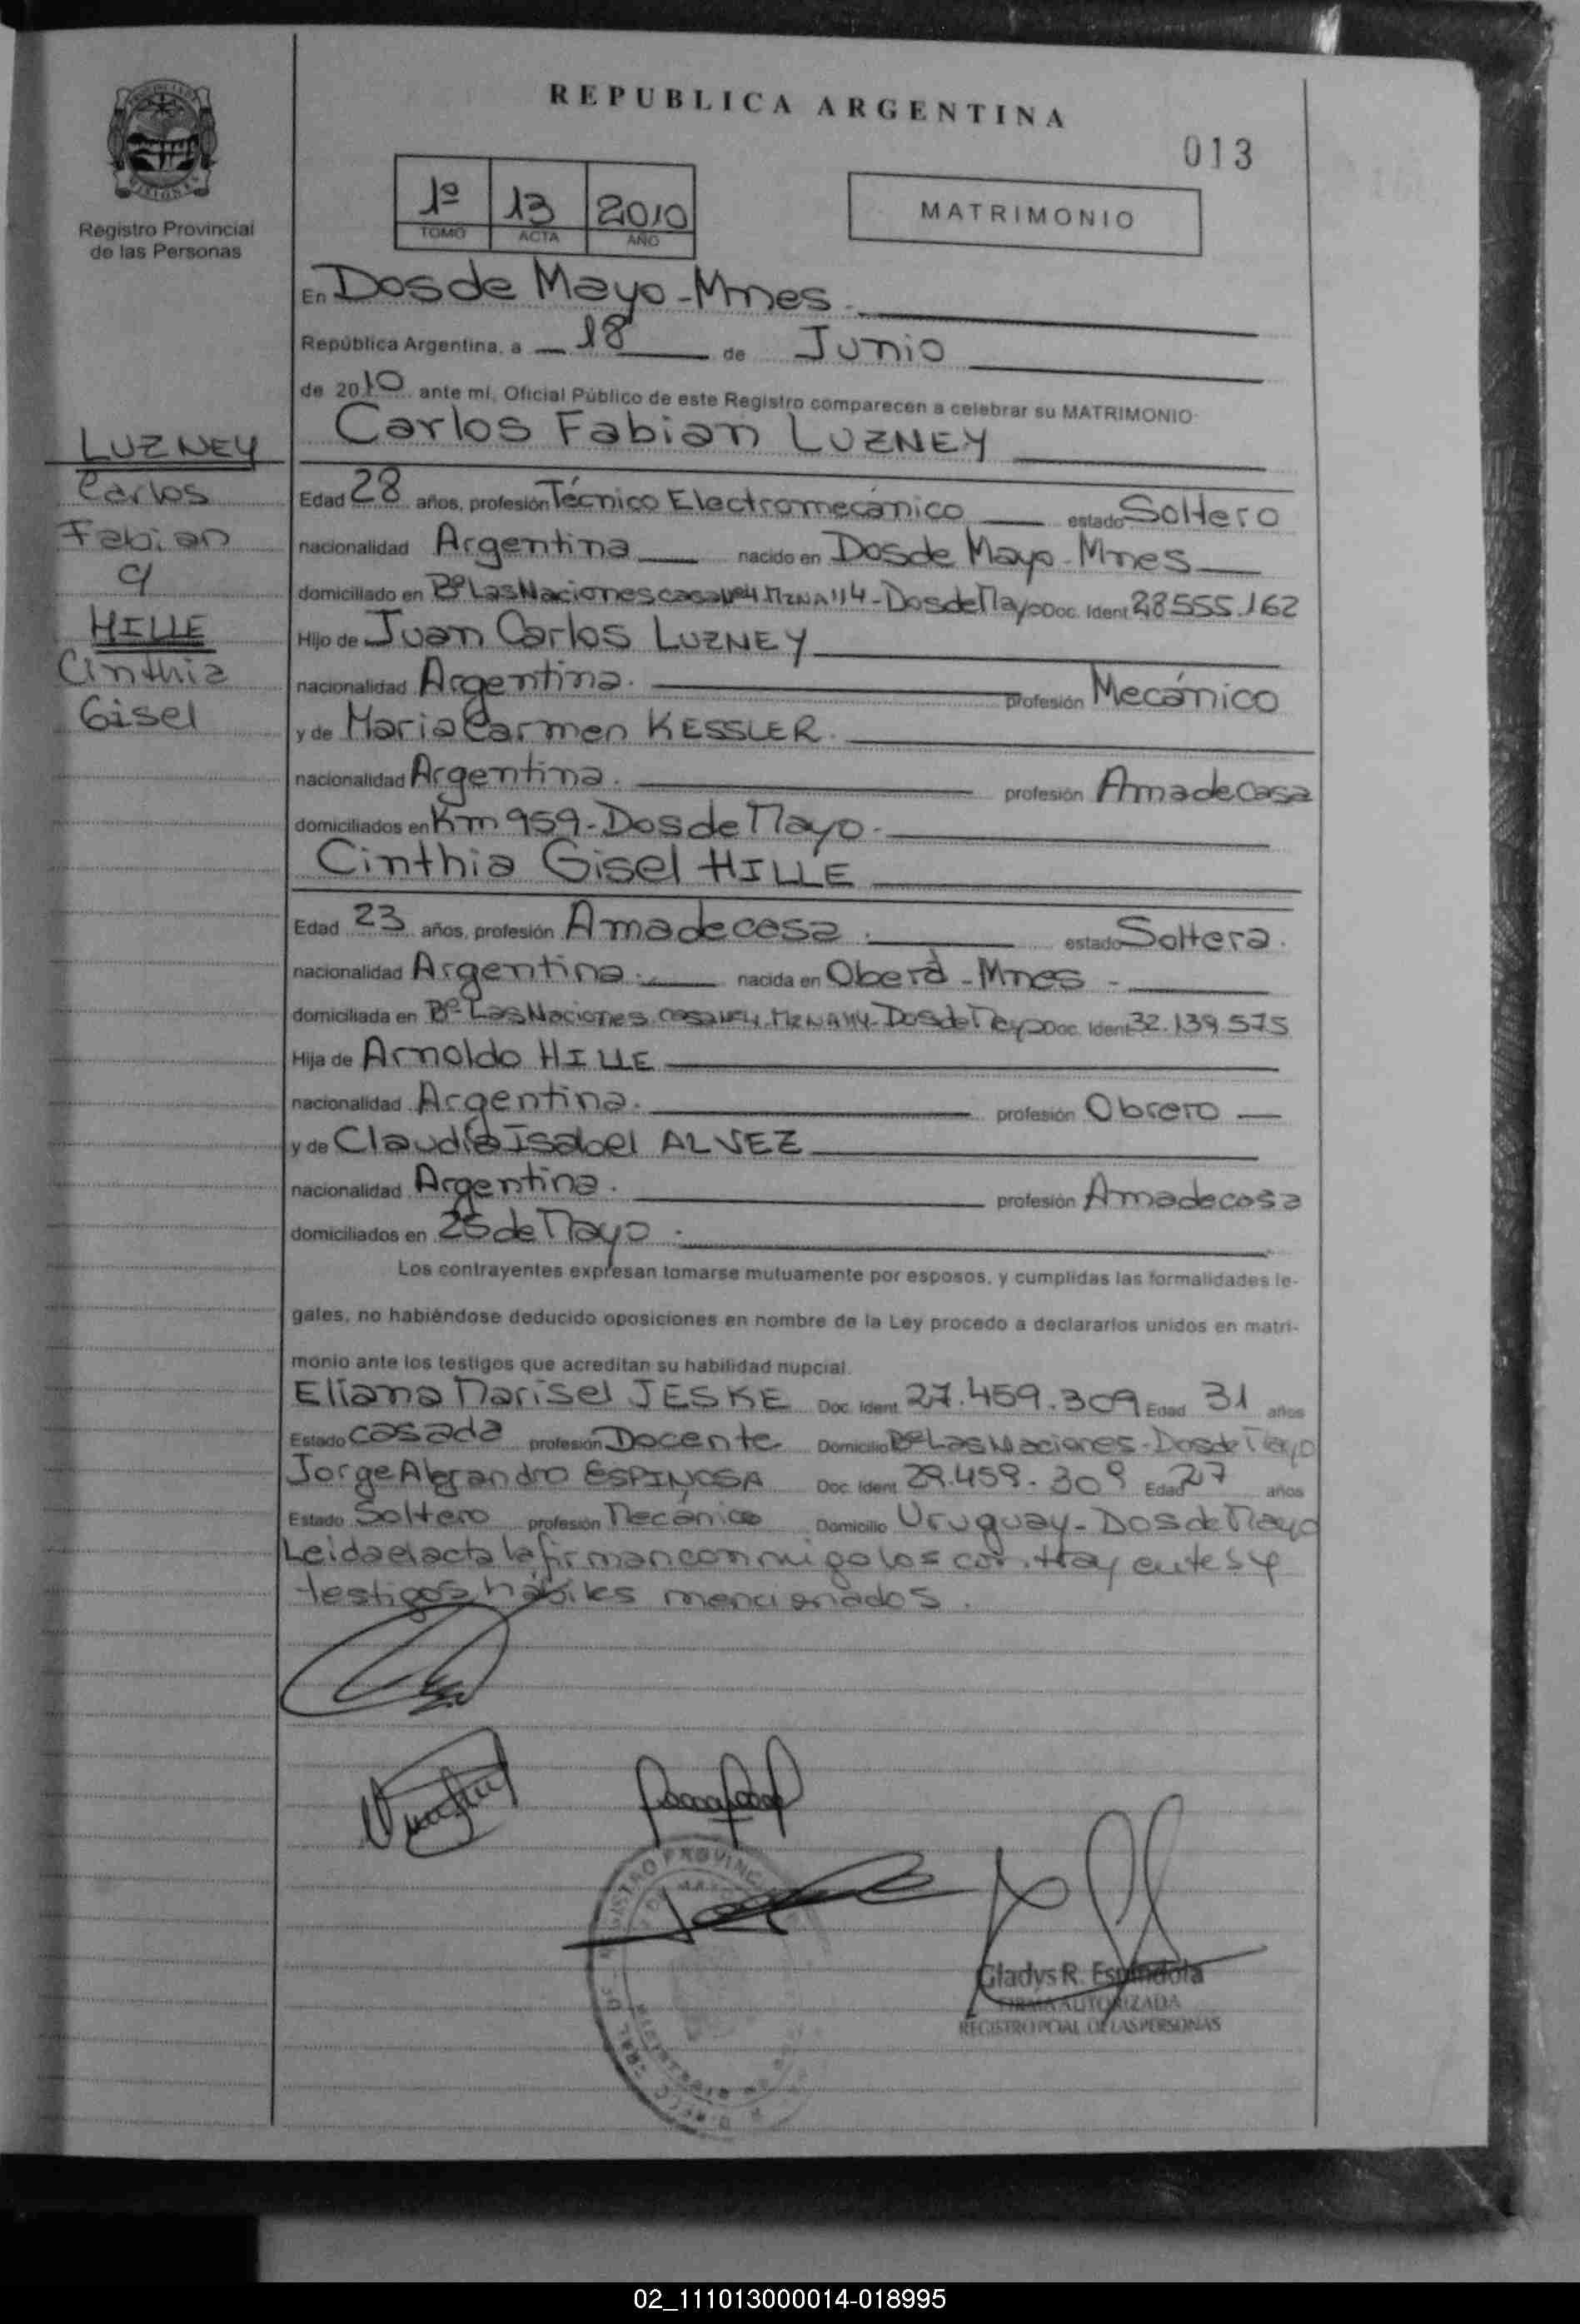 REPUBLICA ARGENTINA
013
Registro Provincial
de las Personas
1º 13 2010
TOMO ACTA AÑO
MATRIMONIO
En Dos de Mayo - Mnes.
República Argentina, a 18 de Junio
de 2010 ante mi, Oficial Público de este Registro comparecen a celebrar su MATRIMONIO
Carlos Fabian LUZNEY
LUZNEY
Carlos
Fabian
y
HILLE
Cinthia
Gisel
Edad 28 años, profesión Técnico Electromecánico estado Soltero
nacionalidad Argentina nacido en Dos de Mayo - Mnes
domiciliado en Bº Las Naciones casa Nº4 MZNA 114 - Dos de Mayo Doc. Ident. 28.555.162
Hijo de Juan Carlos LUZNEY
nacionalidad Argentina. profesión Mecánico
y de Maria Carmen KESSLER.
nacionalidad Argentina. profesión Ama de casa
domiciliados en Km 959 - Dos de Mayo -
Cinthia Gisel HILLE
Edad 23 años, profesión Ama de casa. estado Soltera.
nacionalidad Argentina. nacida en Oberá - Mnes -
domiciliada en Bº Las Naciones casa Nº4 MZNA 114 - Dos de Mayo Doc. Ident. 32.139.575
Hija de Arnoldo HILLE
nacionalidad Argentina. profesión Obrero
y de Claudia Isabel ALVEZ
nacionalidad Argentina. profesión Ama de casa
domiciliados en 25 de Mayo.
Los contrayentes expresan tomarse mutuamente por esposos, y cumplidas las formalidades le-
gales, no habiéndose deducido oposiciones en nombre de la Ley procedo a declararlos unidos en matri-
monio ante los testigos que acreditan su habilidad nupcial.
Eliana Marisel JESKE Doc. Ident. 27.459.309 Edad 31 años
Estado casada profesión Docente Domicilio Bº Las Naciones - Dos de Mayo
Jorge Alejandro ESPINOSA Doc. Ident. 29.459.309 Edad 27 años
Estado Soltero profesión Mecánico Domicilio Uruguay - Dos de Mayo
Leida el acta la firman conmigo los contrayentes y
testigos hábiles mencionados.
Gladys R. Espíndola
FIRMA AUTORIZADA
REGISTRO PCIAL. DE LAS PERSONAS
02_111013000014-018995